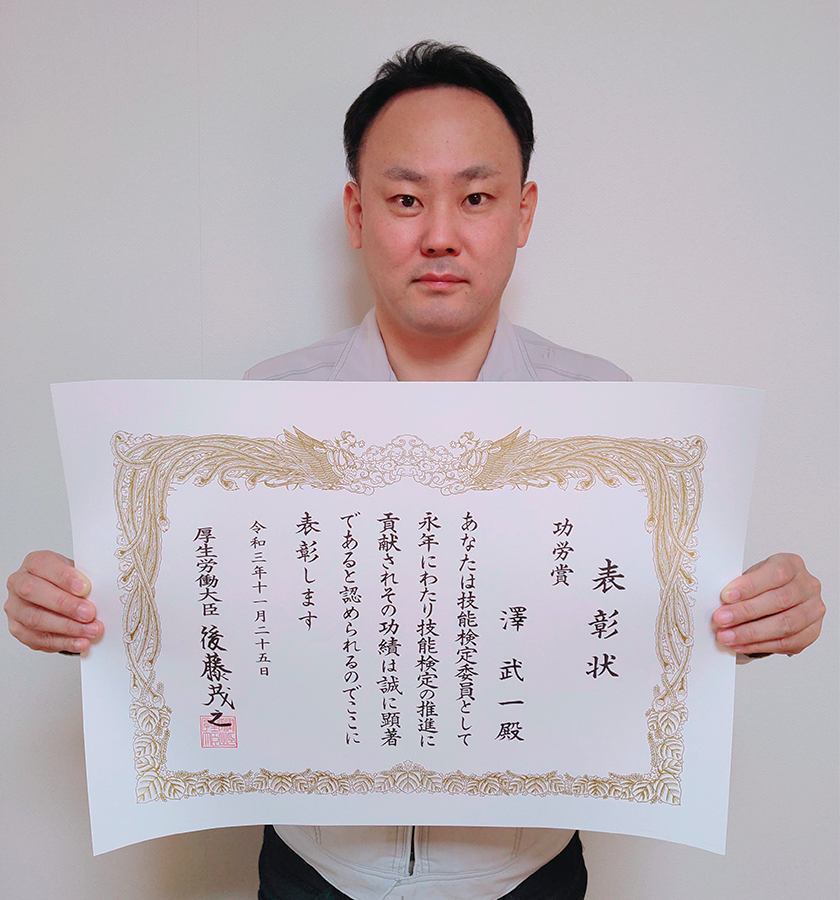 表彰状
功労賞
澤武一殿
あなたは技能検定委員として
永年にわたり技能検定の推進に
貢献されその功績は誠に顕著
であると認められるのでここに
表彰します
令和三年十一月二十五日
厚生労働大臣 後藤茂之